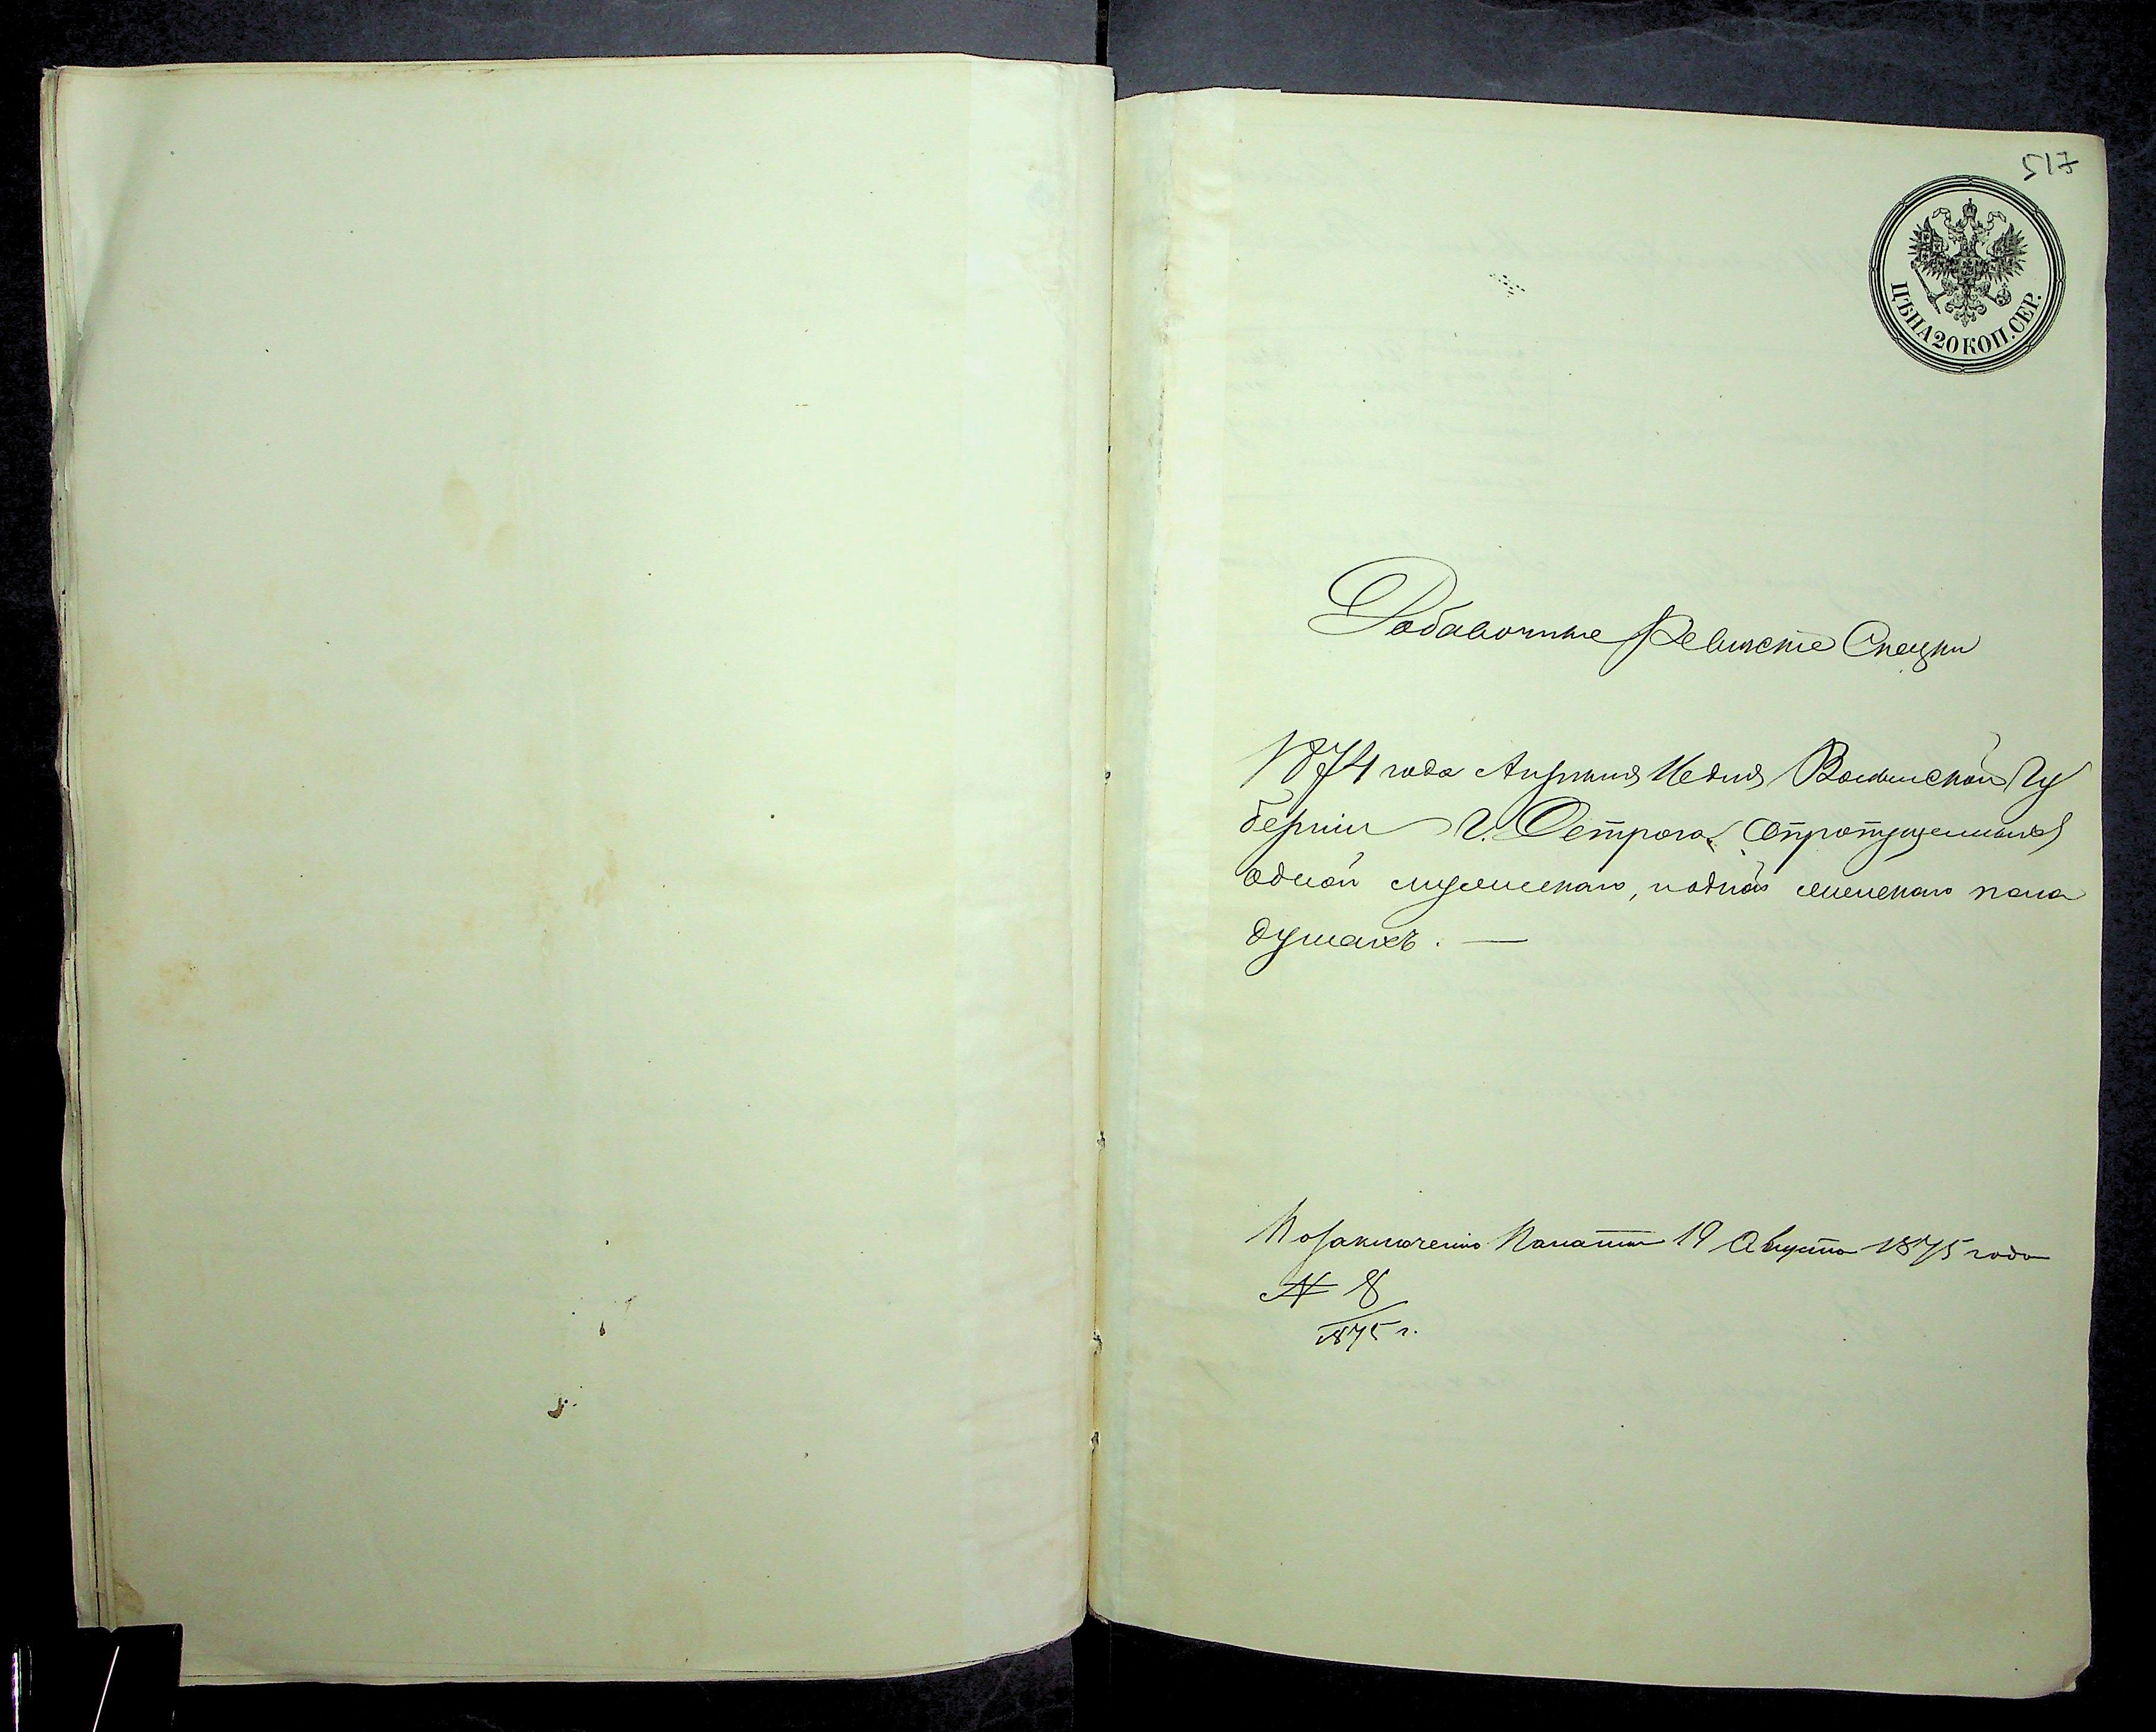 517
ЦѢНА 20 КОП. СЕР.
Добавочные Ревизскіе Сказки
1874 года Апреля дня Волынской Гу
берніи г. Острога о пропущенныхъ
одной мужескаго, и одной женскаго пола
душахъ. —
По заключенію Палаты 19 Августа 1875 года
№ 8
1875 г.